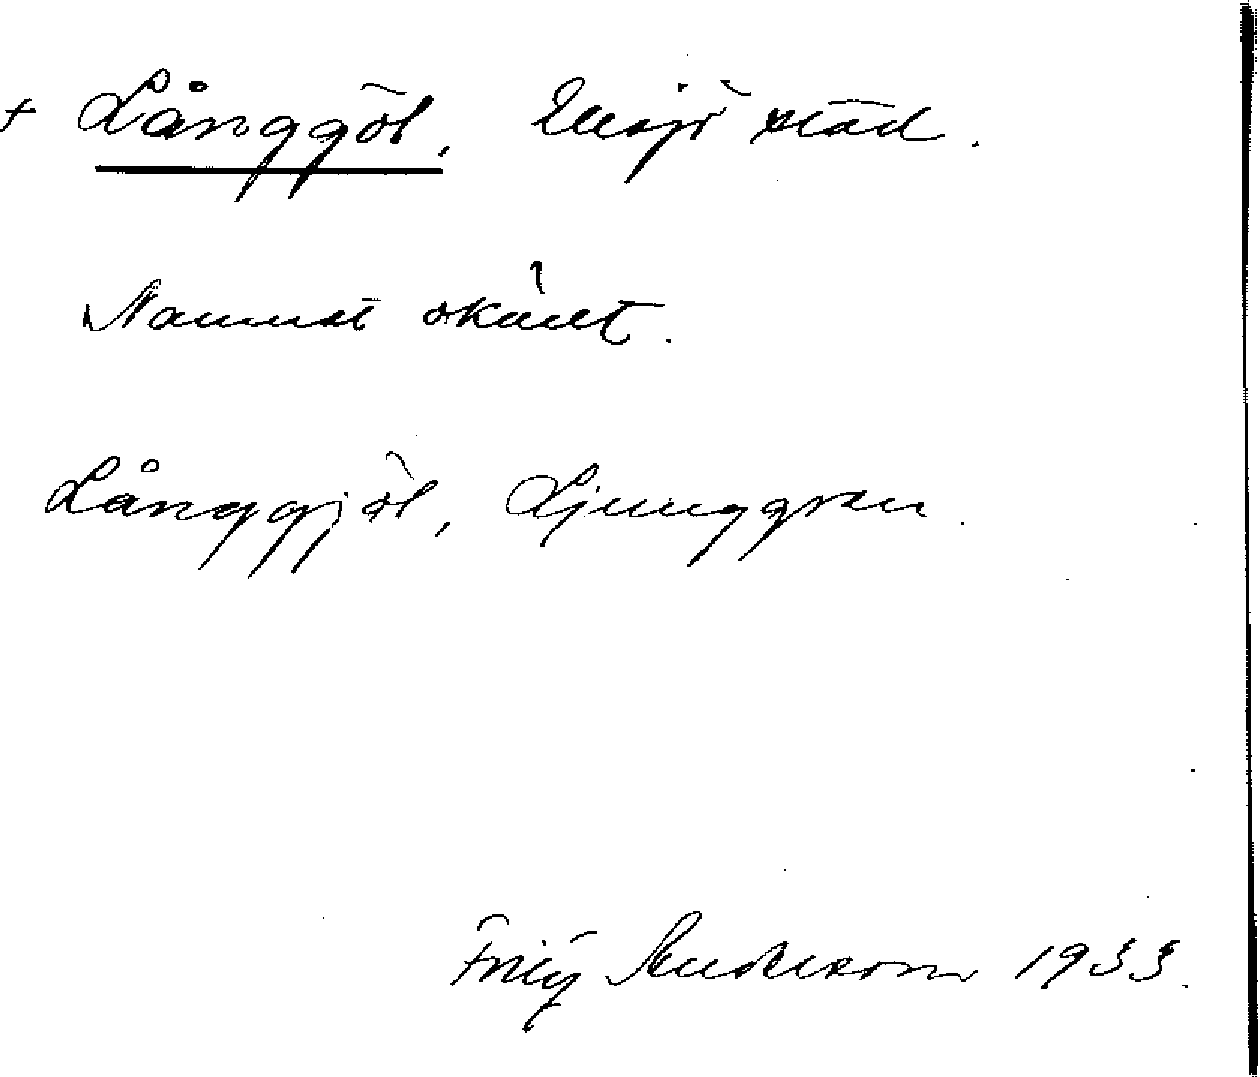 + Långgöl, Älvsjö städ.
Namnet okänt.
Långgjöl, Ljunggren.
Fritz Andersson 1933.